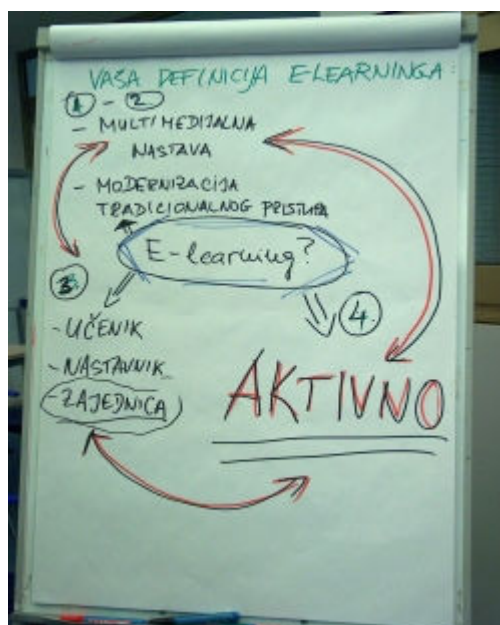 VAŠA DEFINICIJA E-LEARNINGA:
1. - 2.
- MULTIMEDIJALNA
NASTAVA
- MODERNIZACIJA
TRADICIONALNOG PRISTUPA
E-learning?
3.
4.
- UČENIK
- NASTAVNIK
- ZAJEDNICA
AKTIVNO